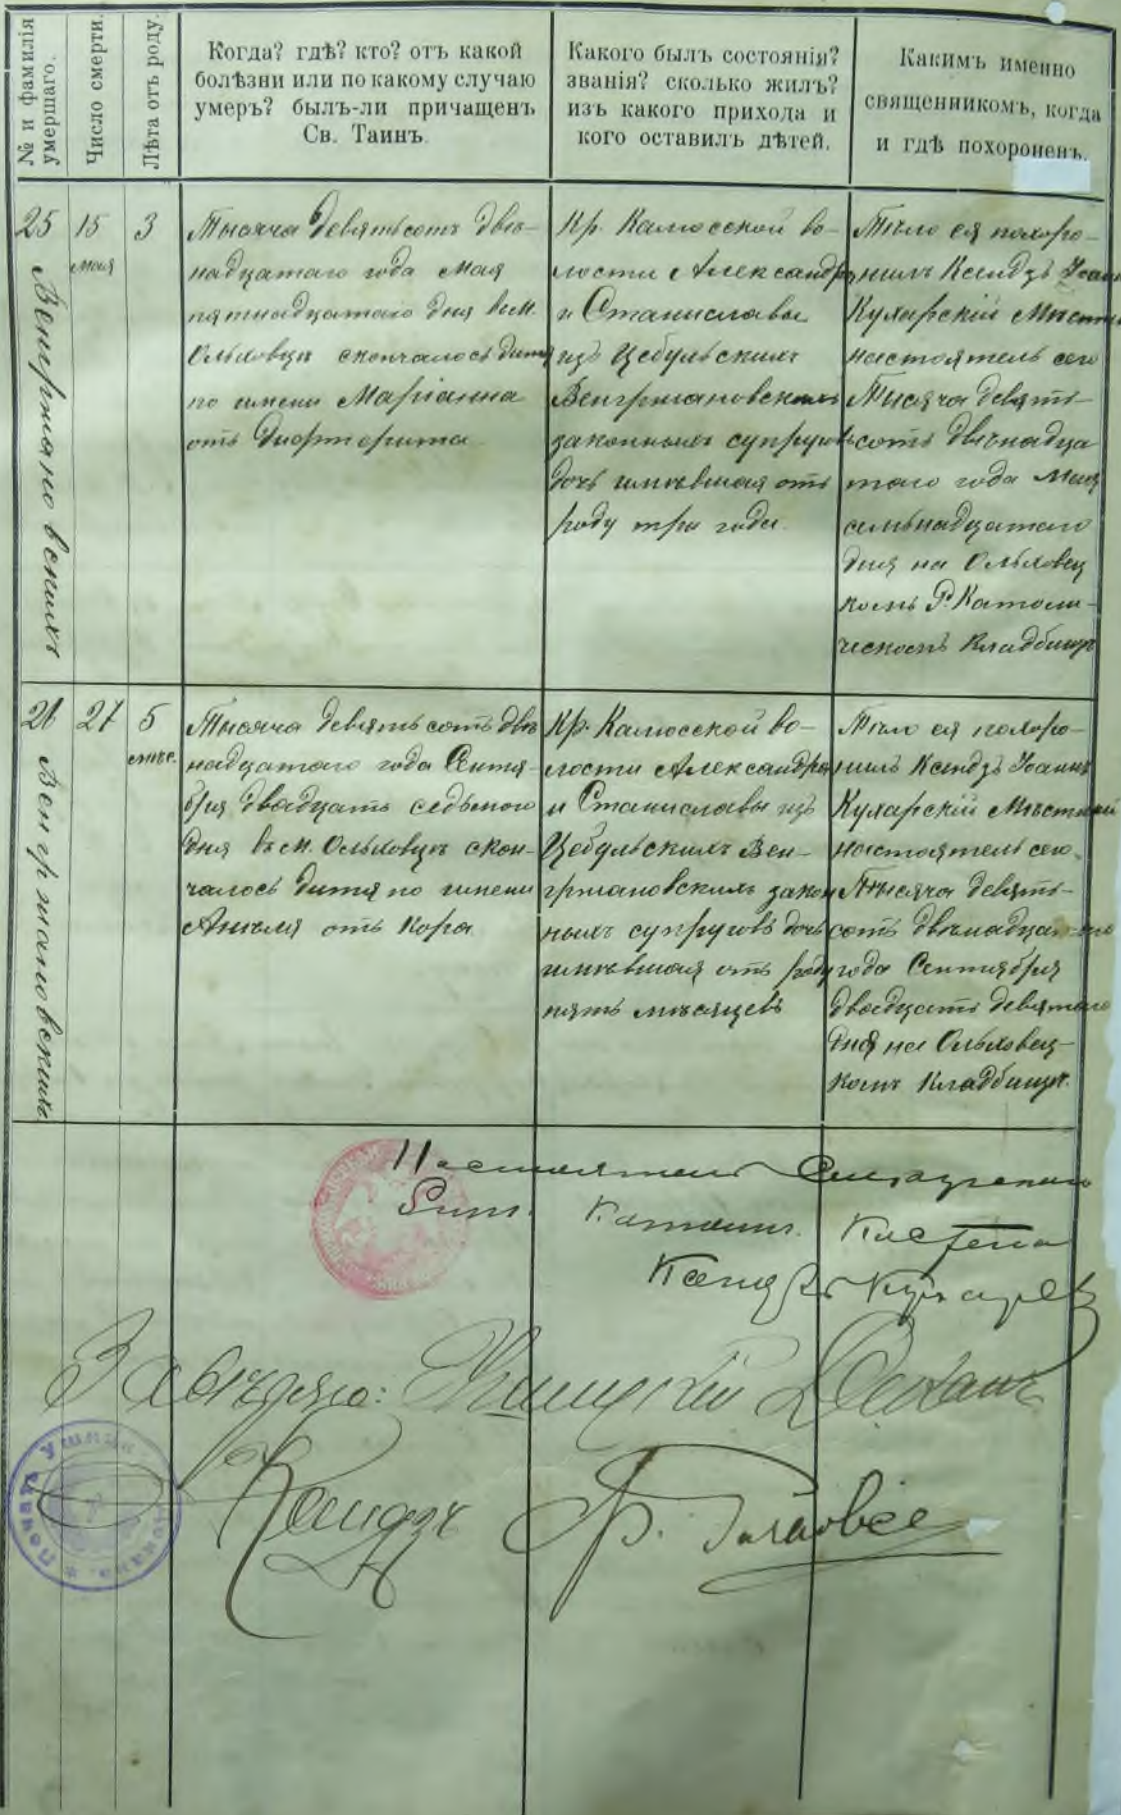 № и фамилія умершаго.
Число смерти.
Лѣта отъ роду.
Когда? гдѣ? кто? отъ какой
болѣзни или по какому случаю
умеръ? былъ-ли причащенъ
Св. Таинъ.
Какого былъ состоянія?
званія? сколько жилъ?
изъ какого прихода и
кого оставилъ дѣтей.
Какимъ именно
священникомъ, когда
и гдѣ похороненъ.
25
Венгржановскихъ
15
мая
3
Тысяча девятьсотъ двѣ-
надцатаго года Мая
пятнадцатаго дня въ м.
Ольховцѣ скончалось дитя
по имени Маріанна
отъ диөтерита
Кр. Калюсской во-
лости Александра
и Станиславы
изъ Цебульскихъ
Венгржановскихъ
законныхъ супруговъ
дочь имѣвшая отъ
роду три года.
Тѣло ея похоро-
нилъ Ксендзъ Іоаннъ
Кухарскій Мѣстный
настоятель сего
Тысяча девять-
сотъ двѣнадца
таго года Мая
семьнадцатаго
дня на Ольховец
комъ Р. Католи-
ческомъ Кладбищѣ
26
Венгржановскихъ
27
5
мѣс.
Тысяча девятьсотъ двѣ
надцатаго года Сентя-
бря двадцать седьмого
дня въ м. Ольховцѣ скон-
чалось дитя по имени
Анеля отъ кора
Кр. Калюсской во-
лости Александра
и Станиславы изъ
Цебульскихъ Вен-
гржановскихъ закон
ныхъ супруговъ дочь
имѣвшая отъ роду
пять мѣсяцевъ
Тѣло ея похоро-
нилъ Ксендзъ Іоаннъ
Кухарскій Мѣстный
настоятель сего.
Тысяча девять-
сотъ двѣнадцатаго
года Сентября
двадцать девятаго
дня на Ольховец-
комъ Кладбищѣ.
Настоятель
Рим. Катол. Костела
Ксендзъ Кухарск
Завѣряю: Ушицкій Деканъ
Ксендзъ